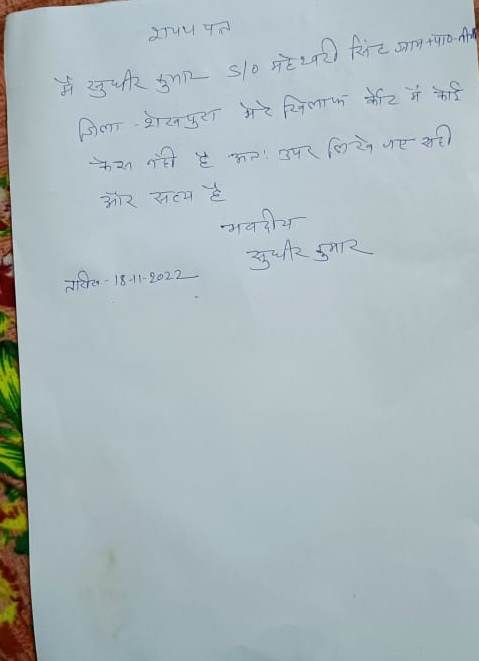 शपथ पत्र
मैं सुधीर कुमार S/O महेश्वरी सिंह ग्राम+पो०-
जिला - शेखपुरा मेरे खिलाफ कोर्ट में कोई
केस नहीं है अतः उपर लिखे गए सही
और सत्य है
भवदीय
सुधीर कुमार
तारिख - 18-11-2022